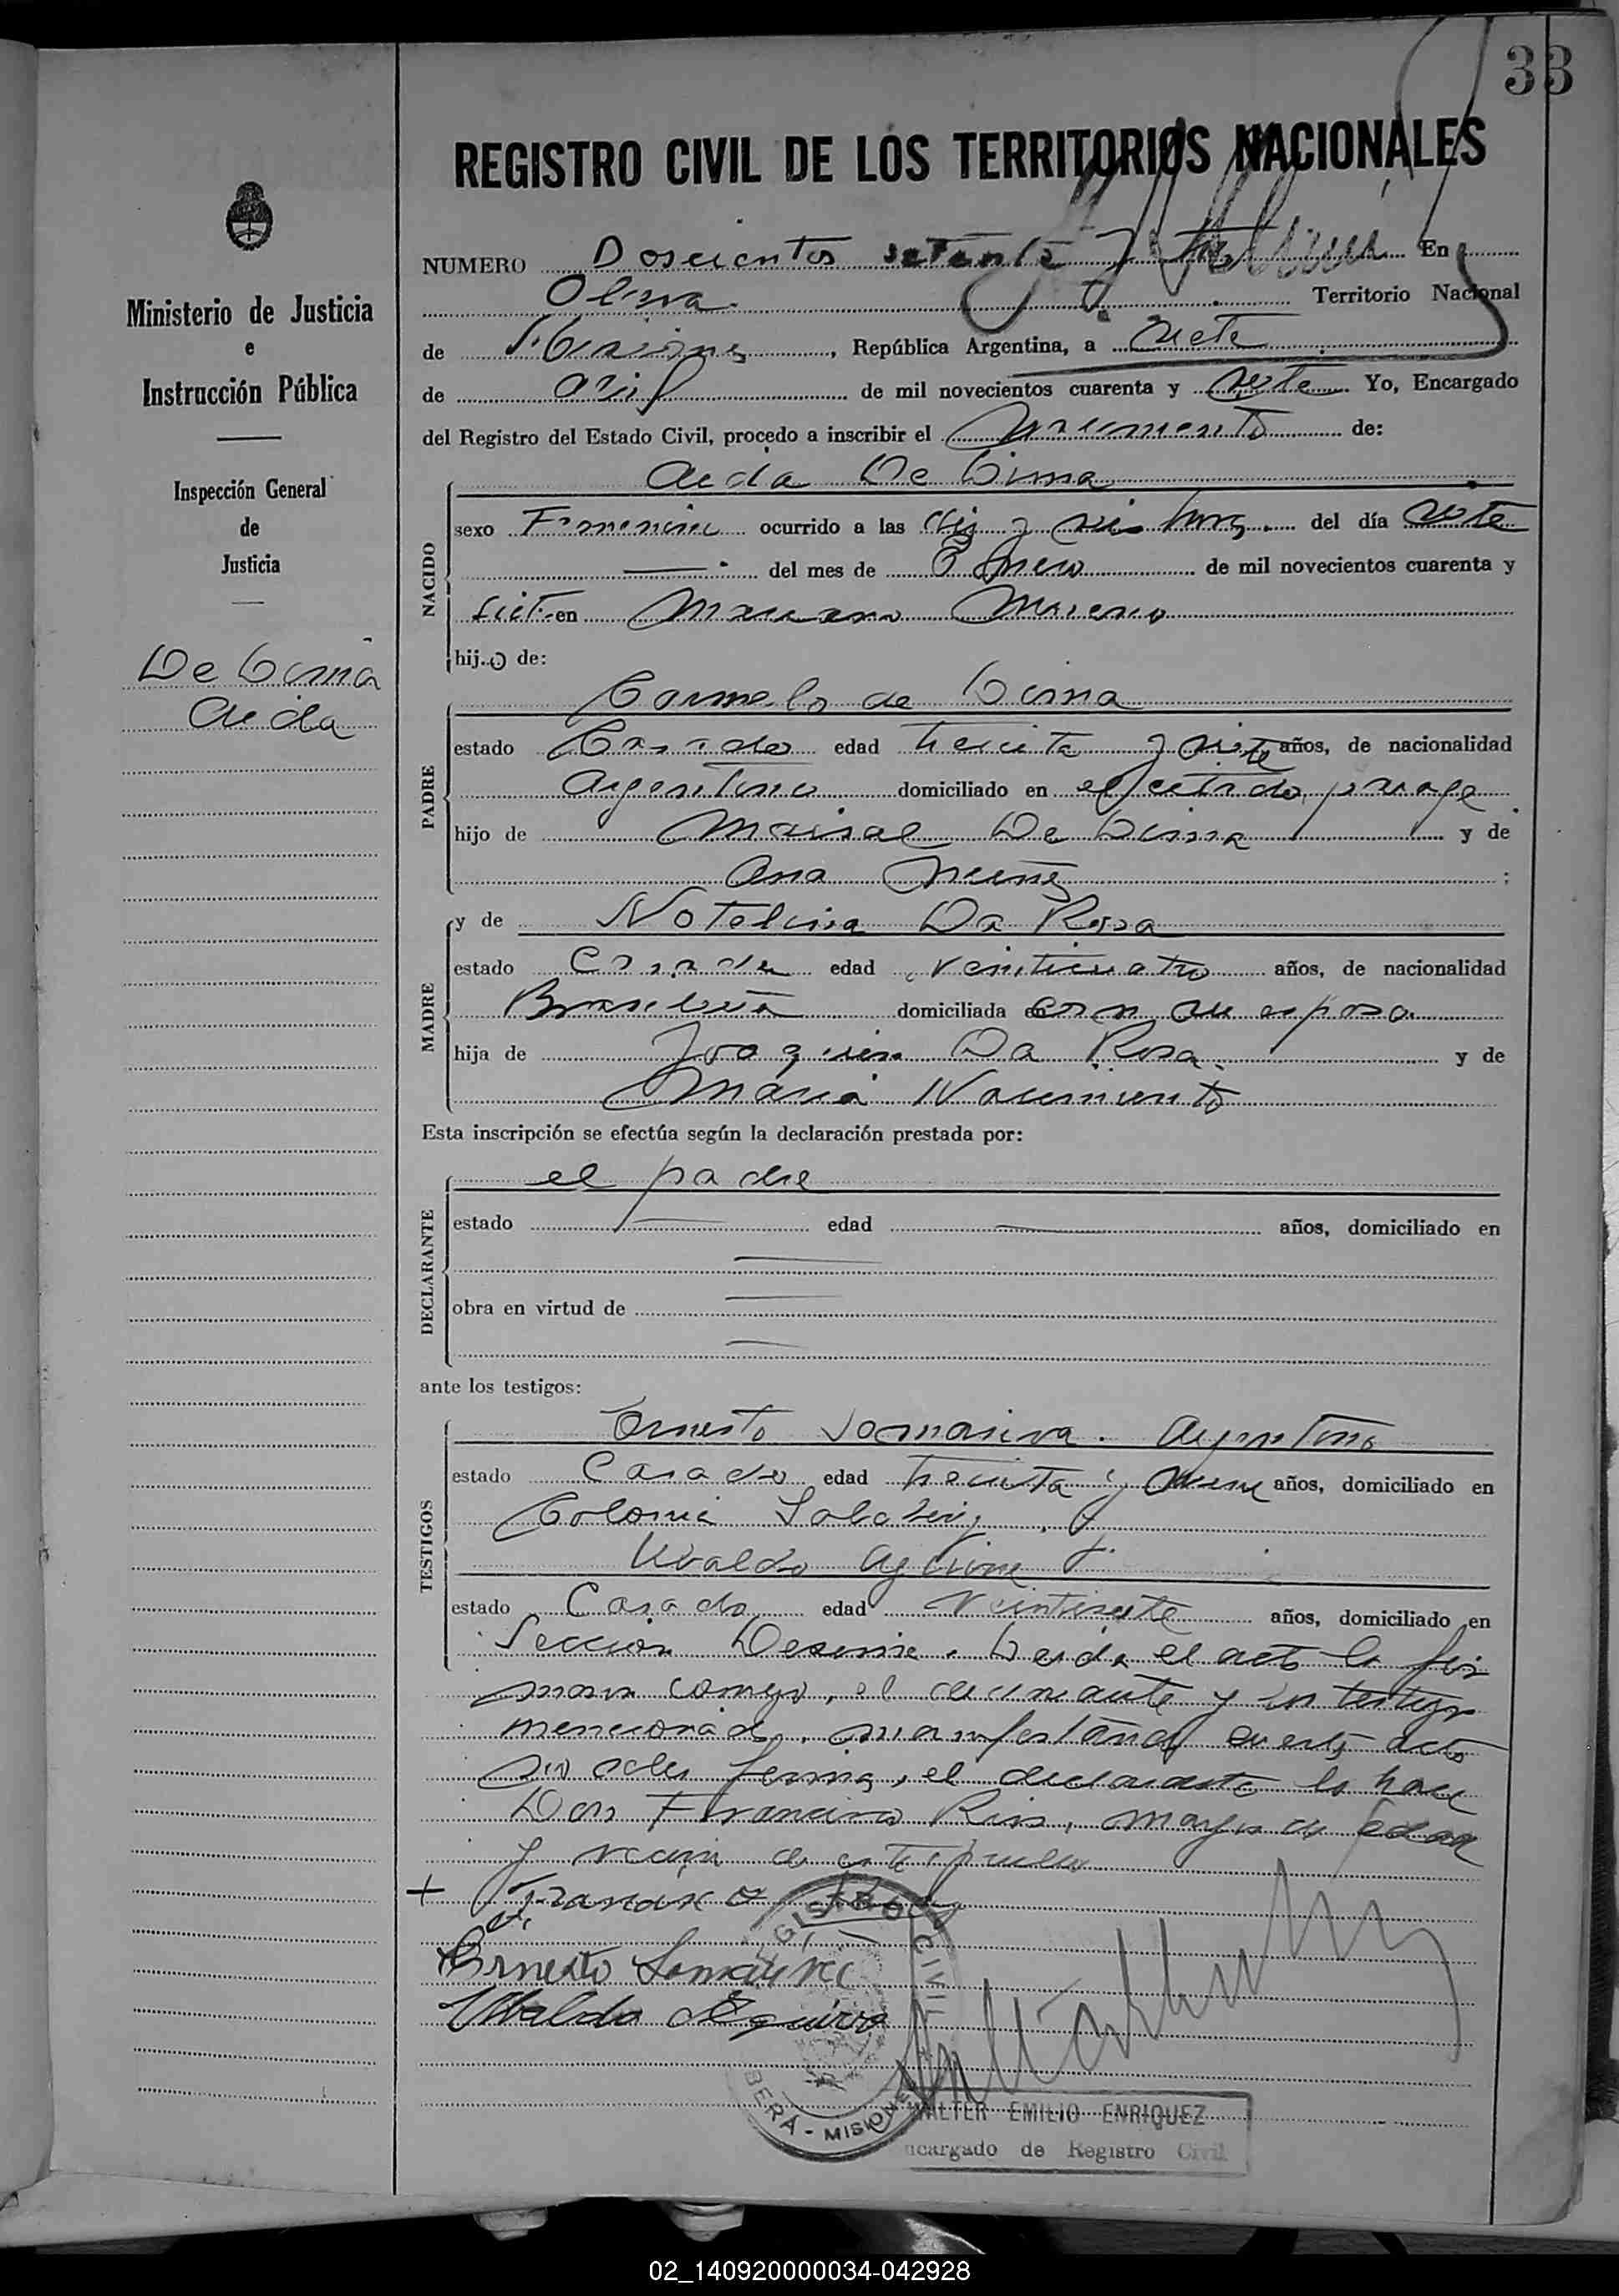 33
REGISTRO CIVIL DE LOS TERRITORIOS NACIONALES
NUMERO Doscientos setenta y En
Territorio Nacional
de Misiones, República Argentina, a siete
de abril de mil novecientos cuarenta y siete Yo, Encargado
del Registro del Estado Civil, procedo a inscribir el nacimiento de:
NACIDO
Aida De Lima
sexo Femenino ocurrido a las diez y seis horas. del día siete
del mes de Enero de mil novecientos cuarenta y
siete en Mariano Moreno
hij.o de:
PADRE
Carmelo de Lima
estado Casado edad treinta y siete años, de nacionalidad
Argentino domiciliado en el citado paraje
hijo de De Lima y de
Ana
MADRE
y de Notelina Da Rosa
estado Casada edad veinticuatro años, de nacionalidad
Brasileña domiciliada en con su esposo
hija de Joaquin Da Rosa y de
Maria Nacimiento
Esta inscripción se efectúa según la declaración prestada por:
DECLARANTE
el padre
estado edad años, domiciliado en
obra en virtud de
ante los testigos:
TESTIGOS
Ernesto . Argentino
estado Casado edad treinta y nueve años, domiciliado en
Colonia
Ubaldo
estado Casado edad veintisiete años, domiciliado en
Sección . Leida el acta la fir
man conmigo, el declarante y los testigos
mencionados, manifestando en este acto
no saber firmar, el declarante lo hace
Don Francisco , mayor de edad
y vecino de este pueblo
+ Francisco
Ernesto
Ubaldo
REGISTRO CIVIL
BERÁ - MISIONES
WALTER EMILIO ENRIQUEZ
ncargado de Registro Civil
Ministerio de Justicia
e
Instrucción Pública
Inspección General
de
Justicia
De Lima
Aida
02_140920000034-042928